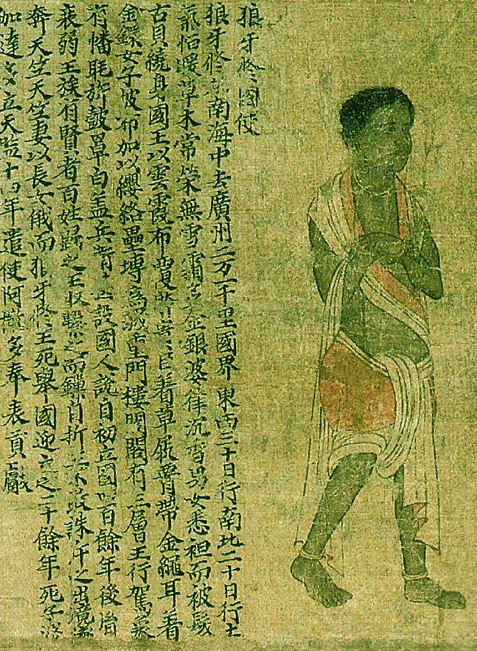 狼牙脩國使
狼牙脩南海中去廣州二万一千里國界東西三十日行南北二十日行土
氣恬暖草木常榮無雪霜多金銀婆律沉香男女悉袒而被髮
古貝繞身國王以雲霞布覆臣着草屐帶金繩耳着
金鐶女子被布加以纓絡壘塼為城重門樓閣有三層王行駕象
有幡毦旂鼓罩白盖兵衛設國人說自初立國四百餘年後嗣
衰弱王族有賢者百姓歸之王収繫之而鏁自折不敢誅斥之出境遂
奔天竺天竺妻以長女俄而狼牙脩王死舉國迎立之二十餘年死子婆
加達多立天監十四年遣使阿撤多奉表貢獻